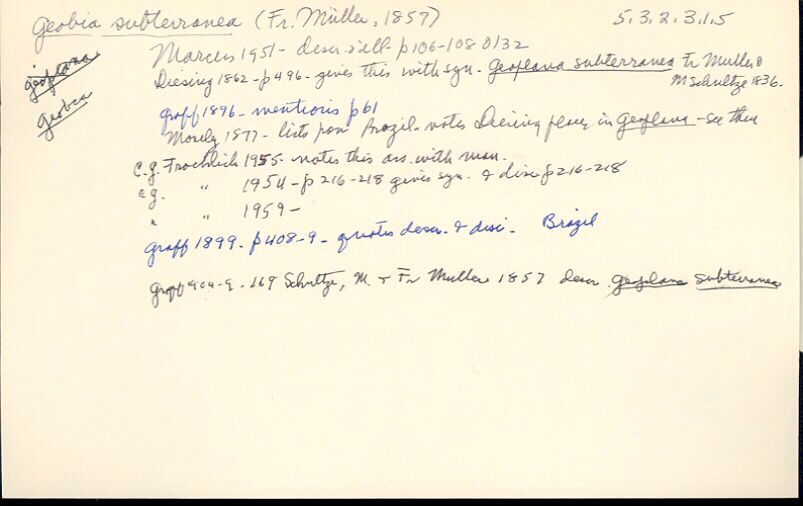 Geobia subterranea (Fr. Müller, 1857) 5.3.2.3.1.5
Marcus 1951 - descr & ill - p 106-108 0/32
geoplana
Diesing 1862 - p 496 - gives this with syn. Geoplana subterranea Fr Muller &
M Schultze 1836.
geobia
graff 1896 - mentions p61
Mosely 1877 - lists from Brazil - notes Diesing places in Geoplana - see then
c.g. Froehlich 1955 - notes this ass. with man.
e.g. " 1954 - p 216-218 gives syn. & disc p 216-218
" " 1959 -
graff 1899 - p 408-9 - quotes descr. & disc. Brazil
graff 1904-9 - 169 Schultze, M. & Fr Muller 1857 descr. geoplana subterranea